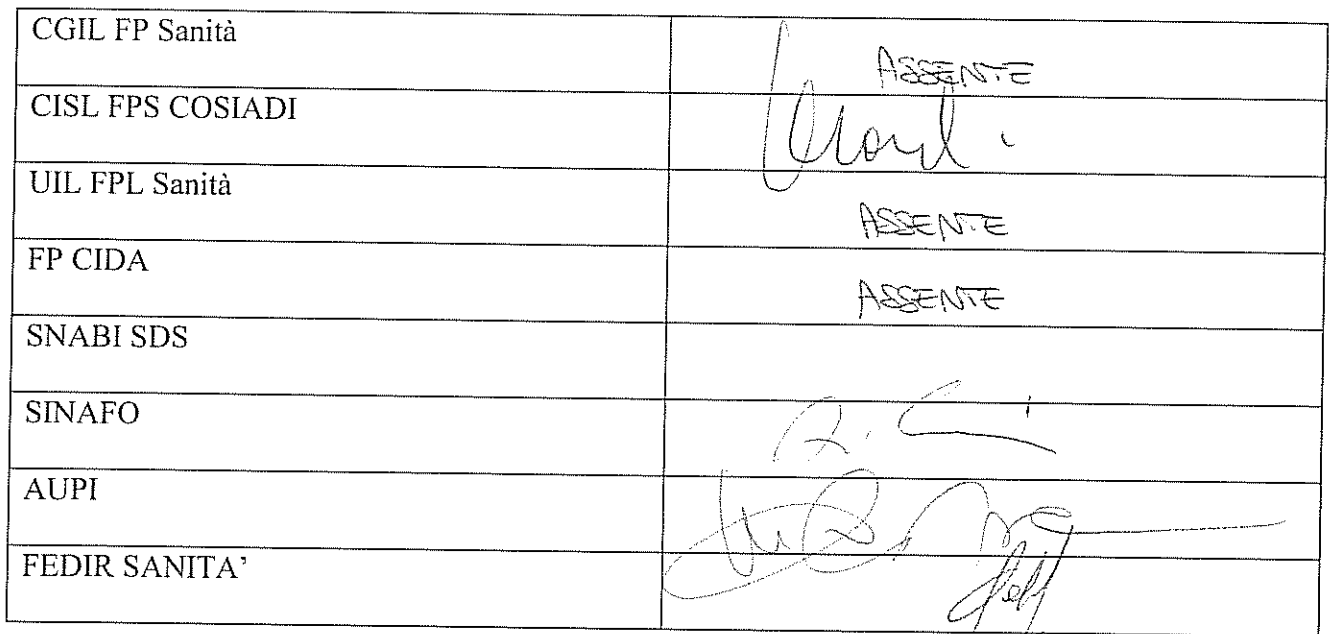 CGIL FP Sanità
ASSENTE
CISL FPS COSIADI
UIL FPL Sanità
ASSENTE
FP CIDA
ASSENTE
SNABI SDS
SINAFO
AUPI
FEDIR SANITA'